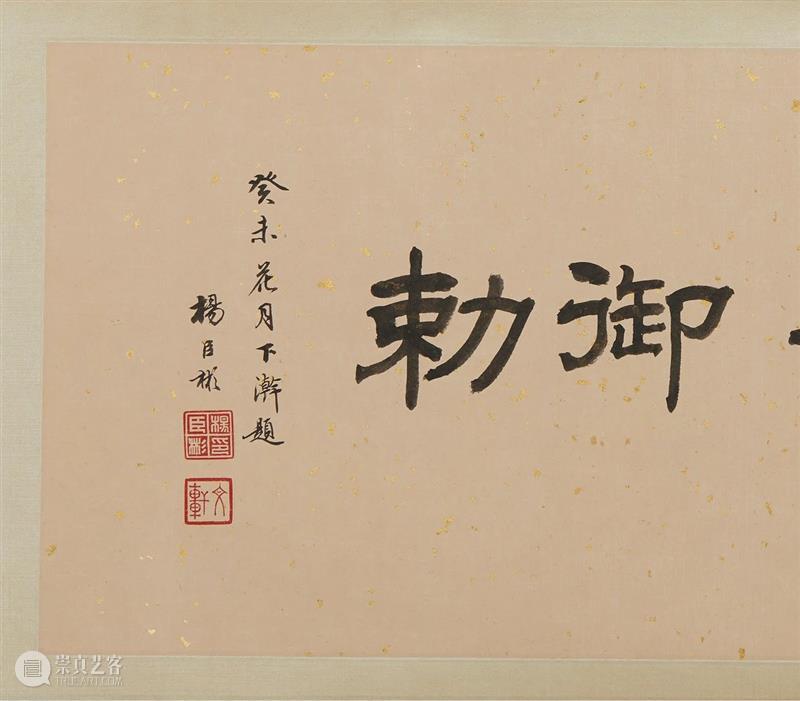 御勅
癸未花月下澣題
楊臣彬
楊印臣彬
文軒
崇真艺客
TRUEART.COM